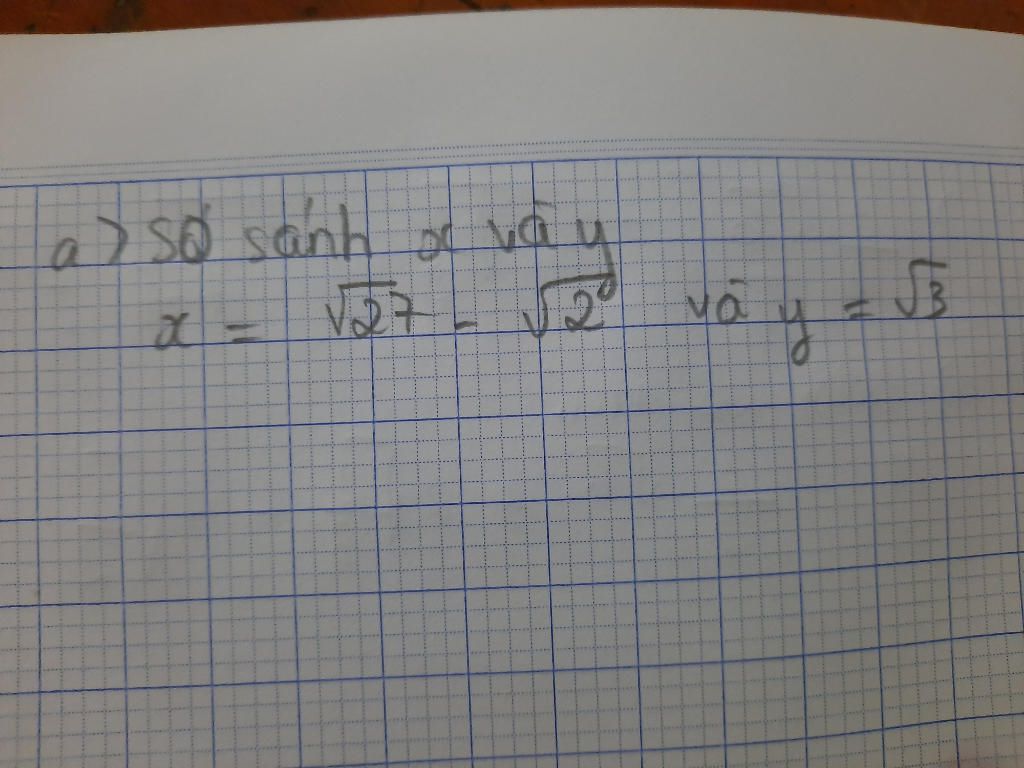 a) Sơ sánh x và y
x = √27 - √2⁰ và y = √3